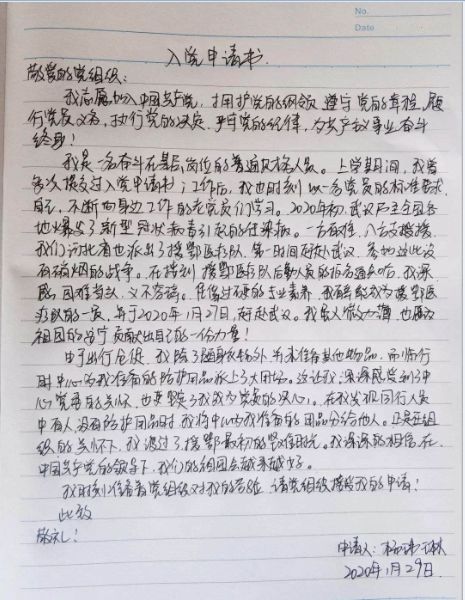 No.
Date
入党申请书
敬爱的党组织：
我志愿加入中国共产党，拥护党的纲领 遵守党的章程，履
行党员义务，执行党的决定，严守党的纪律，为共产主义事业奋斗
终身！
我是一名奋斗在基层岗位的普通医务人员。上学期间，我曾
多次提交过入党申请书；工作后，我也时刻以一名党员的标准要求
自己，不断向身边工作的老党员们学习。2020年初，武汉乃至全国各
地爆发了新型冠状病毒引起的肺炎。一方有难，八方支援，
我们河北省也派出了援鄂医疗队，第一时间奔赴武汉，参加这此没
有硝烟的战争。在接到援鄂医疗队后勤人员的指名通知后，我深
感困难当头，义不容辞。凭借过硬的专业素养，我有幸成为援鄂医
疗队的一员，并于2020年1月27日，奔赴武汉。我虽人微力薄，也愿为
祖国的医疗贡献出自己的一份力量！
由于出行仓促，我除了随身衣物外 并未准备其他物品，而临行
时中心为我准备的防护用品派上了大用场。这让我深深感受到了中
心党委的关怀，也更坚定了我成为党员的决心。在我发现同行人员
中有人没有防护用品时，我将中心为我准备的用品分给他人。正是在组
织的关怀下，我渡过了援鄂最初的艰难时光。我深深的相信，在
中国共产党的领导下，我们的祖国会越来越好。
我时刻准备着党组织对我的考验，请党组织接受我的申请！
此致
敬礼！
申请人：杨
2020年1月29日.